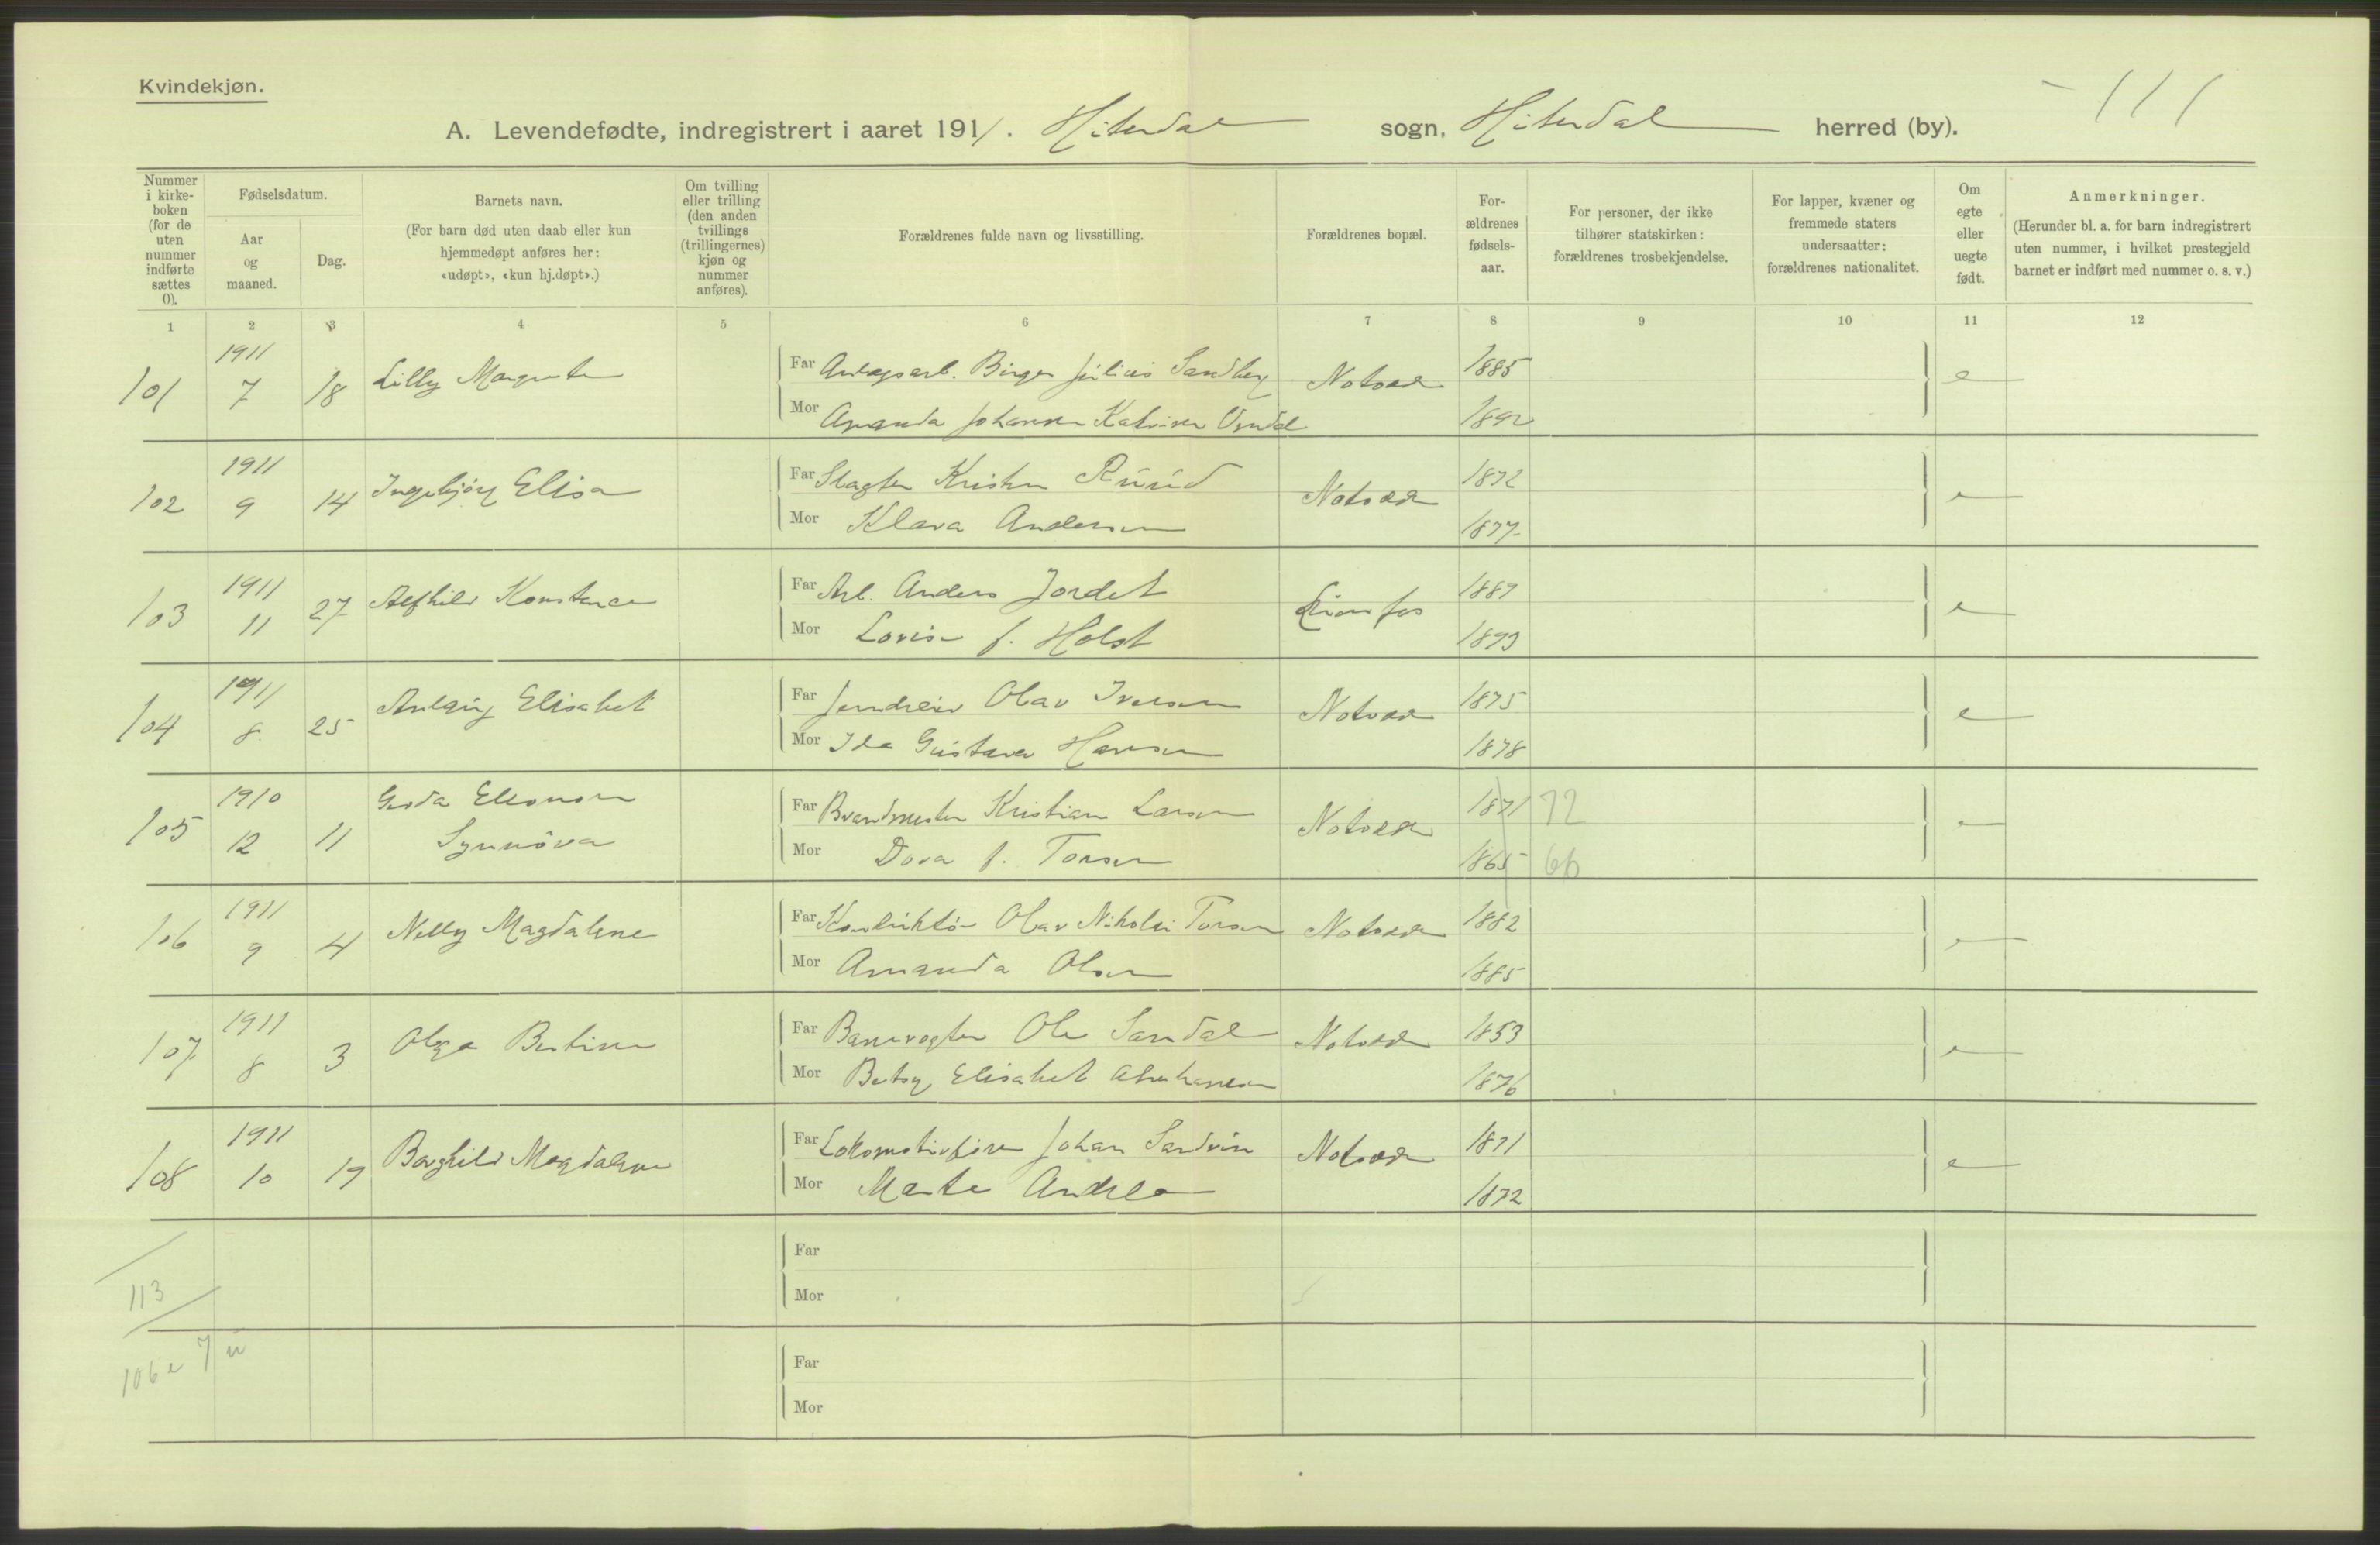 Kvindekjøn.
111
A. Levendefødte, indregistrert i aaret 1911. Hiterdal sogn, Hiterdal herred (by).
Nummer i kirkeboken (for de uten nummer indførte sættes 0).
Fødselsdatum.
Aar og maaned.
Dag.
Barnets navn.
(For barn død uten daab eller kun hjemmedøpt anføres her: «udøpt», «kun hj.døpt».)
Om tvilling eller trilling (den anden tvillings (trillingernes) kjøn og nummer anføres).
Forældrenes fulde navn og livsstilling.
Forældrenes bopæl.
Forældrenes fødselsaar.
For personer, der ikke tilhører statskirken: forældrenes trosbekjendelse.
For lapper, kvæner og fremmede staters undersaatter: forældrenes nationalitet.
Om egte eller uegte født.
Anmerkninger.
(Herunder bl. a. for barn indregistrert uten nummer, i hvilket prestegjeld barnet er indført med nummer o. s. v.)
1 2 3 4 5 6 7 8 9 10 11 12
101 1911 7 18 Lilly Margrete
Far Anlægsarb. Birger Julius Sandberg Notodd 1885 e
Mor Amanda Johanne Katrine 1892
102 1911 9 14 Ingebjörg Elisa
Far Slagter Kristen Ruud Notodd 1872 e
Mor Klara Andersen 1877
103 1911 11 27 Alfhild Konstance
Far Arb. Anders Jordet Lienfos 1887 e
Mor Lovise f. Holst 1893
104 1911 8 25 Aslaug Elisabet
Far Olav Iversen Notodd 1875 e
Mor Ida Gustava Hansen 1878
105 1910 12 11 Gerda Eleonore Synnöva
Far Brandmester Kristian Larsen Notodd 1871 72 e
Mor Dora f. Torsen 1865 66
106 1911 9 4 Nelly Magdalene
Far Konduktör Olav Nikolai Torsen Notodd 1882 e
Mor Amanda Olsen 1885
107 1911 8 3 Olga Bertine
Far Banevogter Ole Sandal Notodd 1853 e
Mor Betsy Elisabet Abrahamsen 1876
108 1911 10 19 Borghild Magdalene
Far Lokomotivförer Johan Sandvin Notodd 1871 e
Mor Marte Andrea 1872
Far
113
Mor
106 e 7 u
Far
Mor